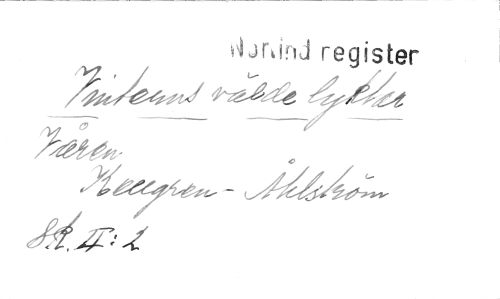 Norlind register
Vinterns välde lyktar
Våren.
Kellgren - Åhlström
S.R. II: 2